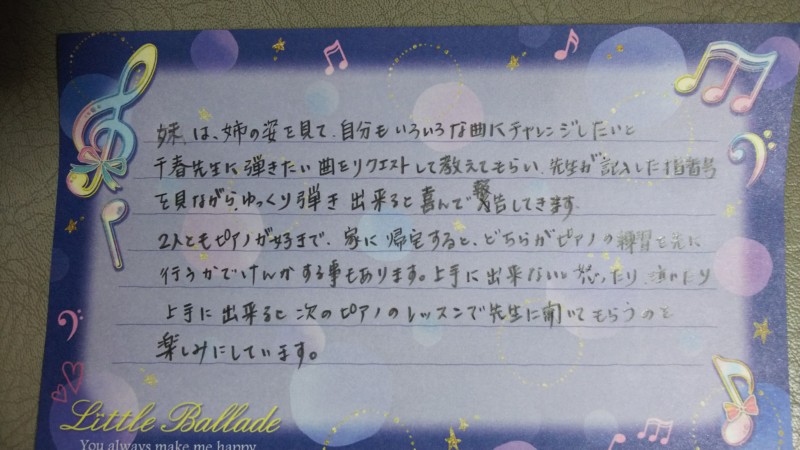 妹は、姉の姿を見て、自分もいろいろな曲にチャレンジしたいと
千春先生に弾きたい曲をリクエストして教えてもらい、先生が記入した指番号
を見ながら、ゆっくり弾き出来ると喜んで報告してきます。
2人ともピアノが好きで、家に帰宅すると、どちらがピアノの練習を先に
行うかでけんかする事もあります。上手に出来ないと怒ったり、泣いたり
上手に出来ると次のピアノのレッスンで先生に聞いてもらうのを
楽しみにしています。
Little Ballade
You always make me happy